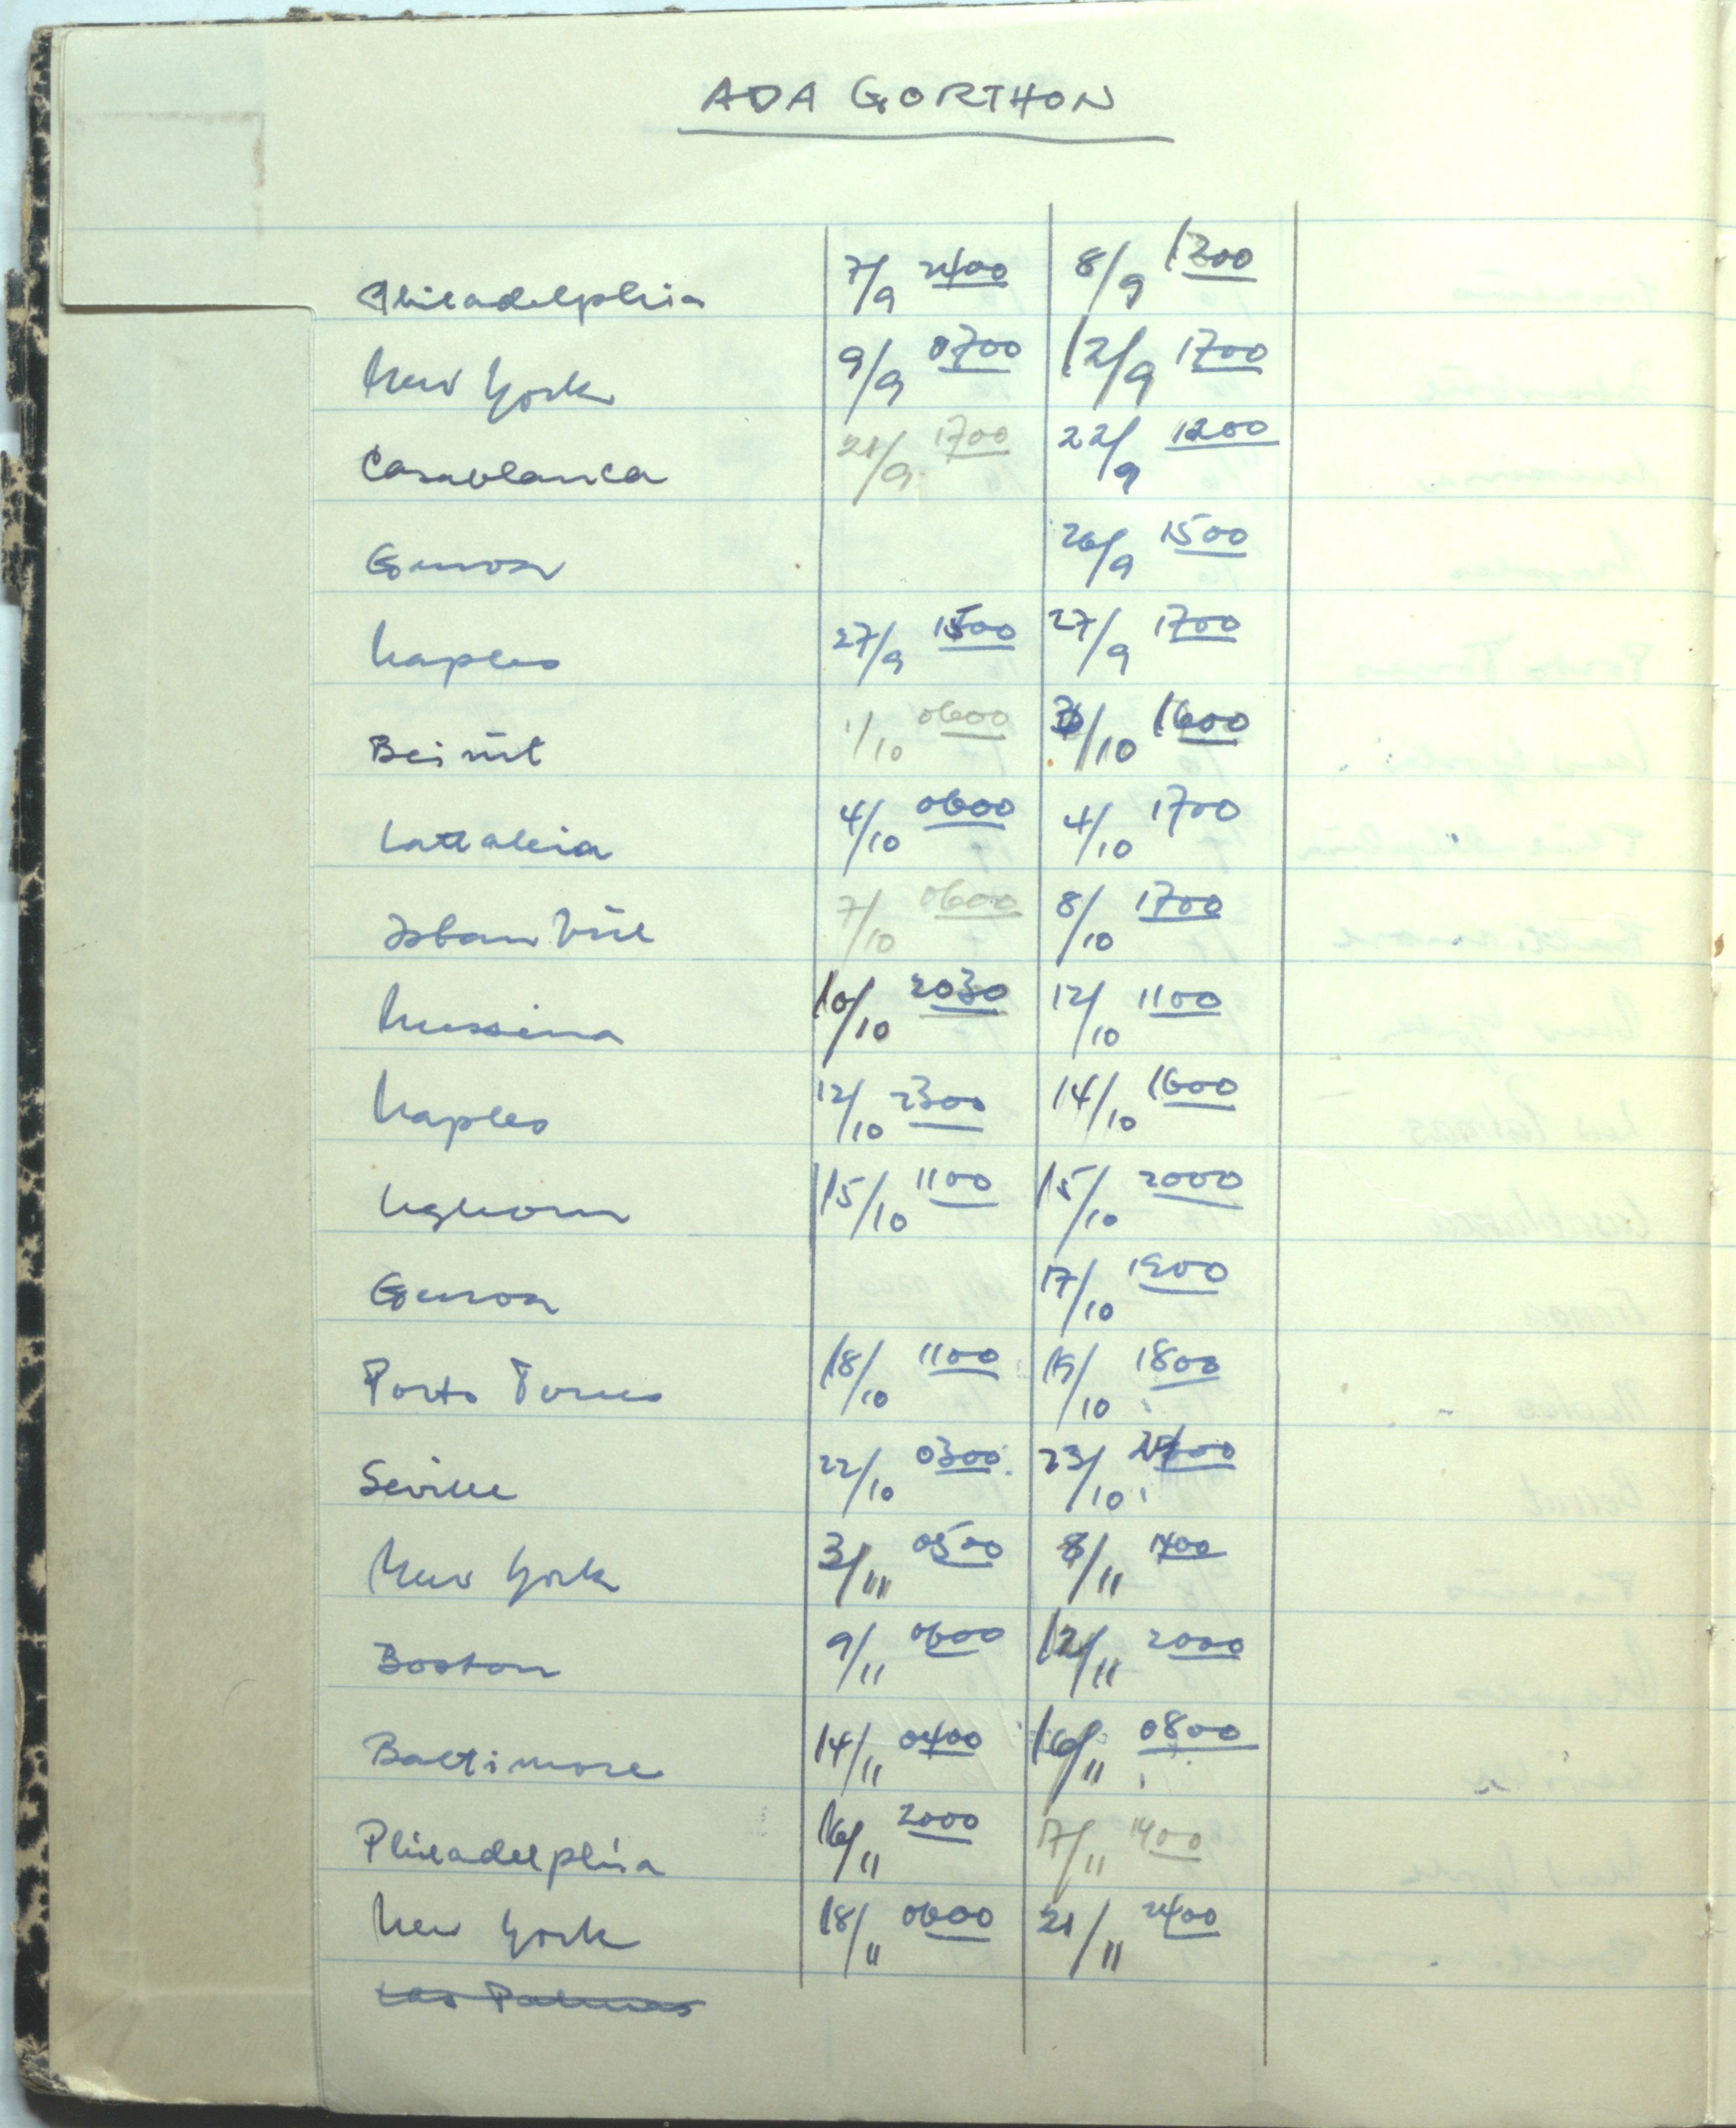 ADA GORTHON
Philadelphia 7/9 2400 8/9 1300
New York 9/9 0700 12/9 1700
Casablanca 21/9 1700 22/9 1200
Genoa 26/9 1500
Naples 27/9 1500 27/9 1700
Beirut 1/10 0600 /10 1600
Lattakia 4/10 0600 4/10 1700
Istanbùl 7/10 0600 8/10 1700
Messina 10/10 2030 12/10 1100
Naples 12/10 2300 14/10 1600
Leghorn 15/10 1100 15/10 2000
Genoa 17/10 1900
Porto Torres 18/10 1100 19/10 1800
Seville 22/10 0300 23/10
New York 3/11 0500 8/11 1700
Boston 9/11 0600 12/11 2000
Baltimore 14/11 0400 16/11 0800
Philadelphia 16/11 2000 17/11 1400
New York 18/11 0600 21/11 2400
Las Palmas